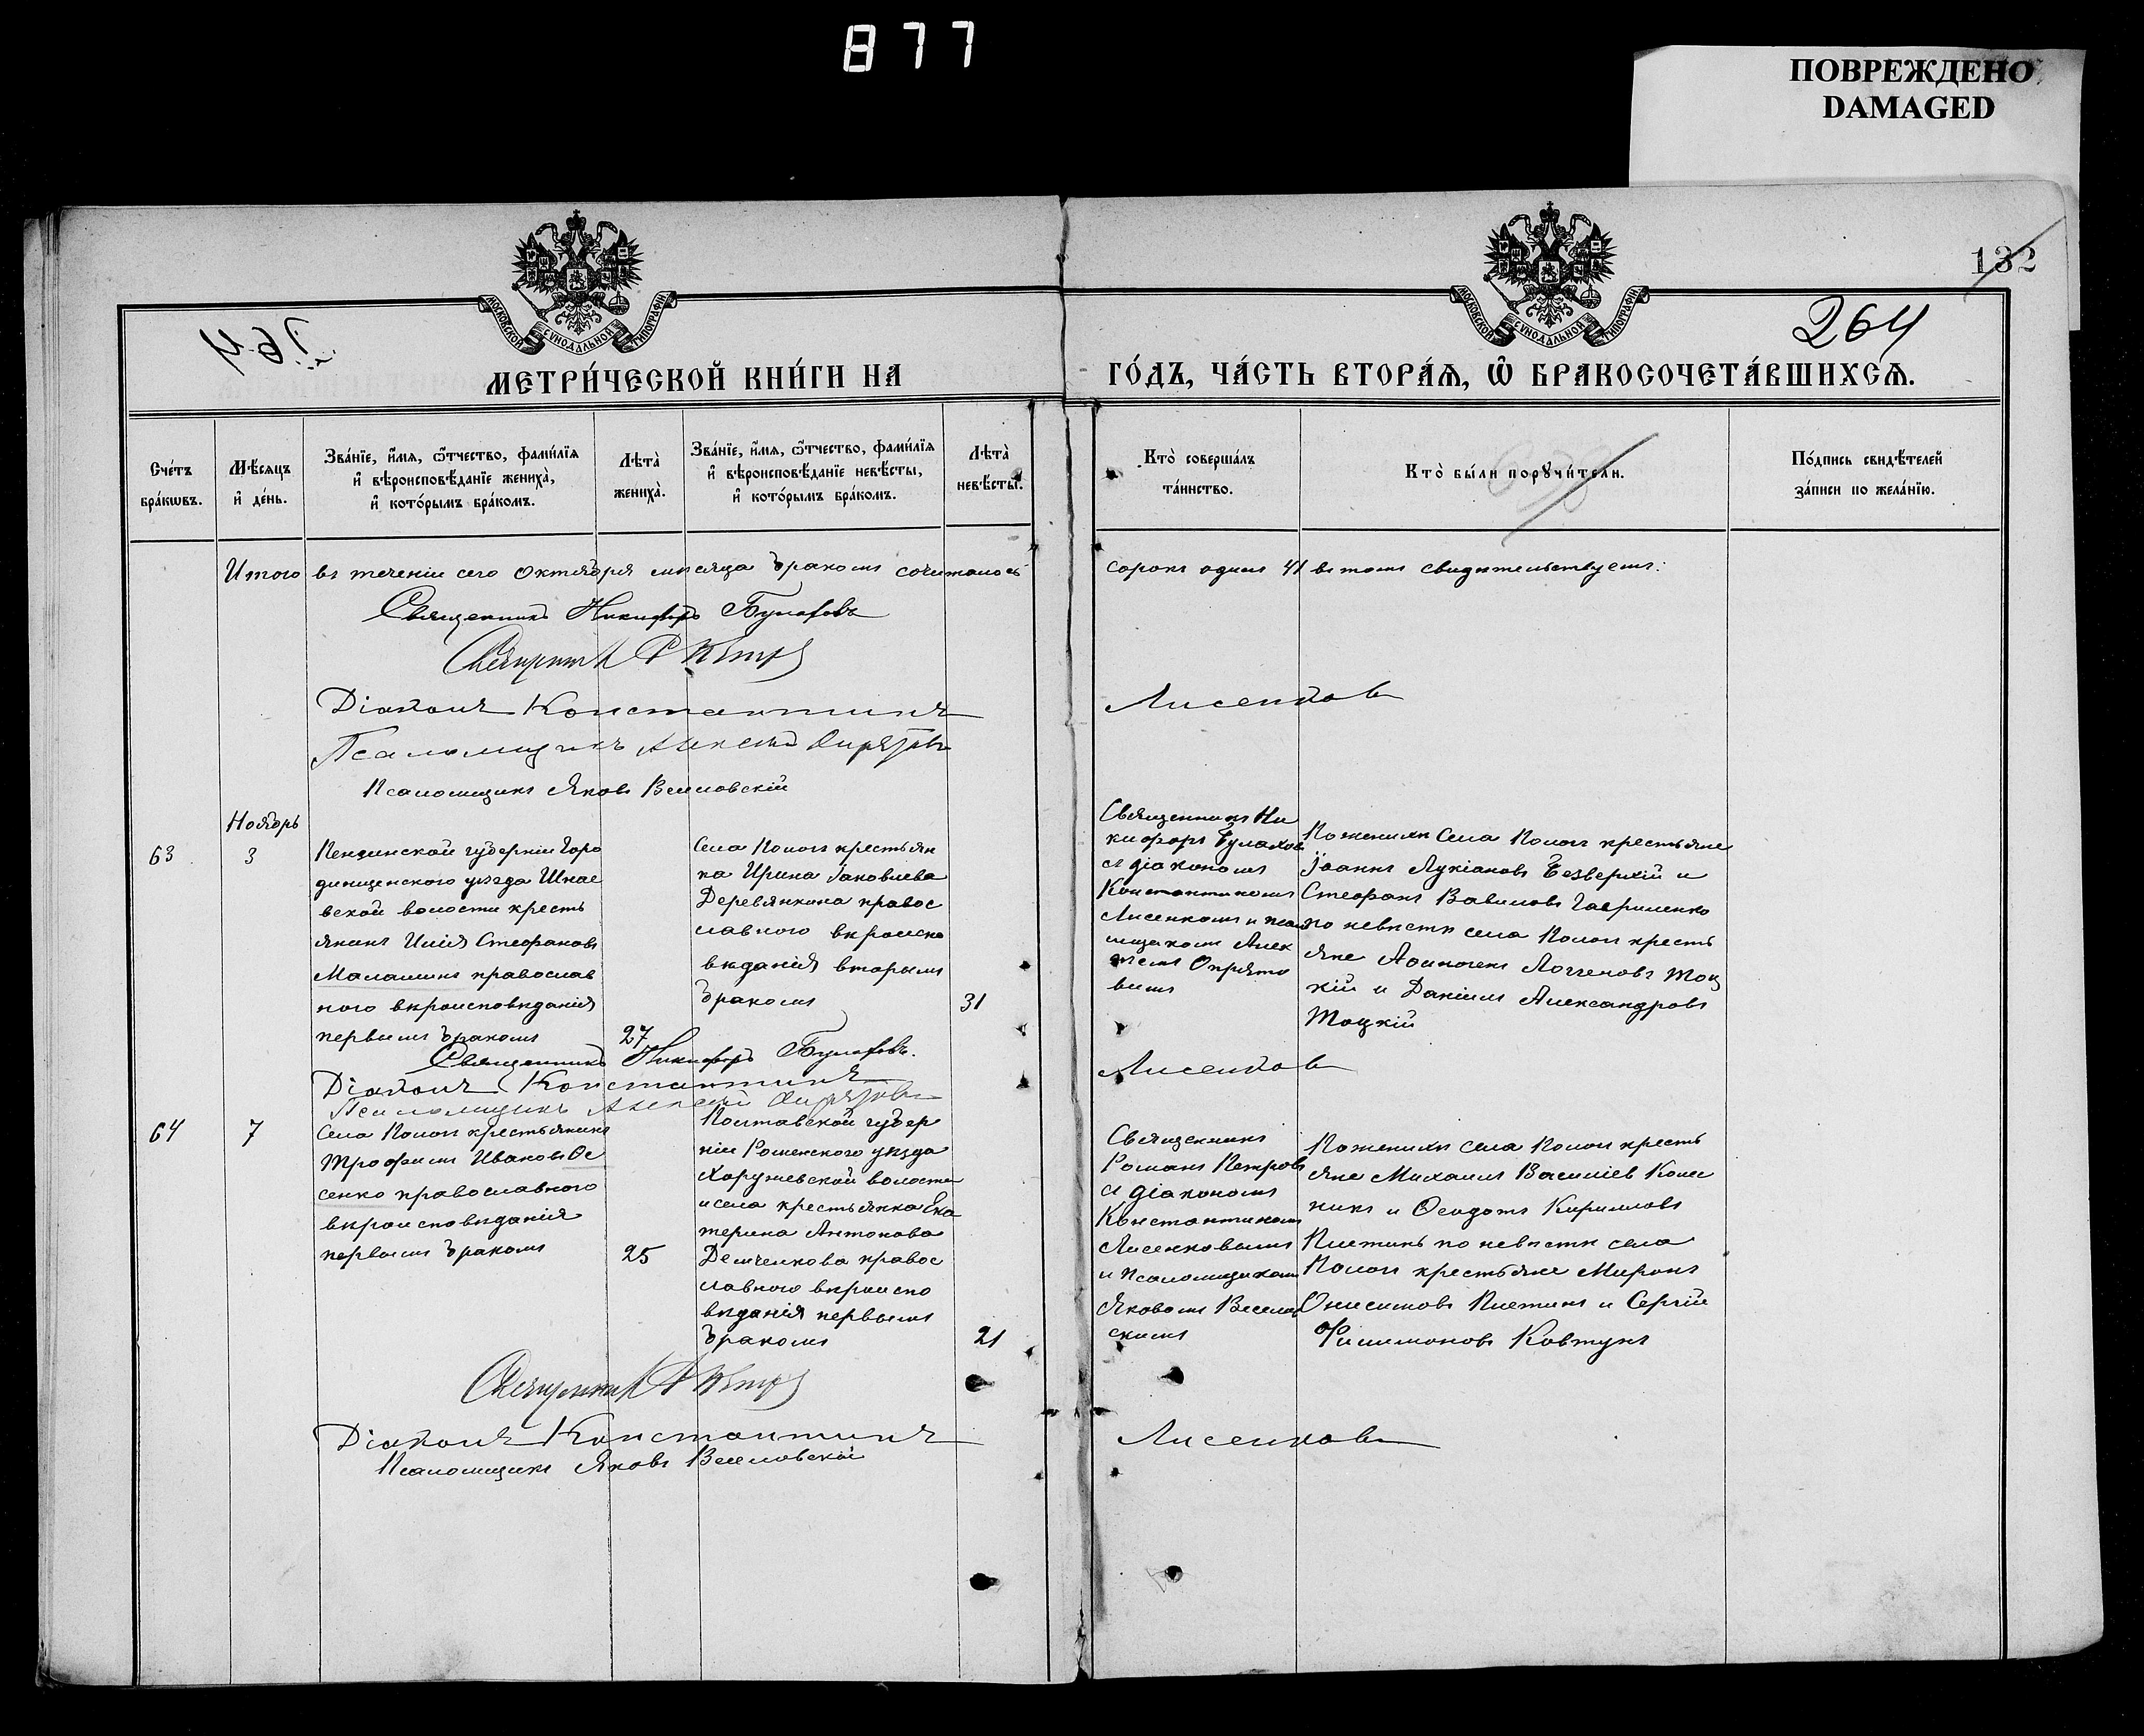 877
ПОВРЕЖДЕНО
DAMAGED
132
264
МОСКОВСКОЙ СѴНОДАЛЬНОЙ ТИПОГРАФІИ
МОСКОВСКОЙ СѴНОДАЛЬНОЙ ТИПОГРАФІИ
МЕТРИ́ЧЕСКОЙ КНИ́ГИ НА
ГО́ДЪ, ЧА́СТЬ ВТОРА́Ѧ, Ѡ҆ БРАКОСОЧЕТА́ВШИХСѦ.
Сче́тъ
бра́кѡвъ.
Мѣ́сѧцъ
и҆ де́нь.
Зва́нїе, и҆́мѧ, ѻ҆́тчество, фами́лїѧ
и҆ вѣроисповѣ́данїе жениха̀,
и҆ кото́рымъ бра́комъ.
Лѣта̀
жениха̀.
Зва́нїе, и҆́мѧ, ѻ҆́тчество, фами́лїѧ
и҆ вѣроисповѣ́данїе невѣ́сты,
и҆ кото́рымъ бра́комъ.
Лѣта̀
невѣ́сты.
Кто̀ соверша́лъ
та́инство.
Кто̀ бы́ли порꙋчи́тели.
По́дпись свидѣ́телей
за́писи по жела́нїю.
Итого въ теченіи сего Октября мѣсяца бракомъ сочиталось
сорокъ одинъ 41 въ томъ свидѣтельствуемъ:
Священникъ Никифоръ Булафовъ
Священникъ Р Петр
Діаконъ Константинъ
Лисенков
Псаломщикъ Алексѣй Опрятовъ
Псаломщикъ Яковъ Веселовскій
Ноябрь
63
3
Пензинской губерніи Горо
дищенского уѣзда Шкае
вской волости кресть
янинъ Илія Стефановъ
Маламинъ православ
ного вѣроисповѣданія
первымъ бракомъ
27
Села Пологъ крестьян
ка Ирина Іаковлева
Деревянкина правос
лавного вѣроиспо
вѣданія вторымъ
бракомъ
31
Священникъ Ни
кифоръ Булахов
съ діакономъ
Константиномъ
Лисенкомъ и псало
мщикомъ Алек
Опрято
вымъ
По женихѣ Села Пологъ крестьяне
Іоаннъ Лукіановъ Безверхій и
Стефанъ Вавиловъ Гавриленко
по невѣстѣ села Пологъ кресть
яне Афиногенъ Логгеновъ Тоц
кій и Даніилъ Александровъ
Тоцкій
Священникъ Никифоръ Булафовъ.
Діаконъ Константинъ
Лисенков
Псаломщикъ Алексѣй Опрятовъ
64
7
Села Пологъ крестьянинъ
Трофимъ Ивановъ Ос
сенко православного
вѣроисповѣданія
первымъ бракомъ
25
Полтавской губер
ніи Роменского уѣзда
Харужевской волости
и села крестьянка Ека
терина Антонова
Демченкова правос
лавного вѣроиспо
вѣданія первымъ
бракомъ
21
Священникъ
Романъ Петровъ
съ діакономъ
Константиномъ
Лисенковымъ
и псаломщикомъ
Яковомъ Веселов
скимъ
По женихѣ села Пологъ кресть
яне Михаилъ Василіев Колес
никъ и Феодотъ Кирилловъ
Плетинь по невѣстѣ села
Пологъ крестьяне Миронъ
Онисимовъ Плетинъ и Сергій
Филимоновъ Ковтунъ
Священникъ Р Петр
Діаконъ Константинъ
Лисенков
Псаломщикъ Яковъ Веселовскій